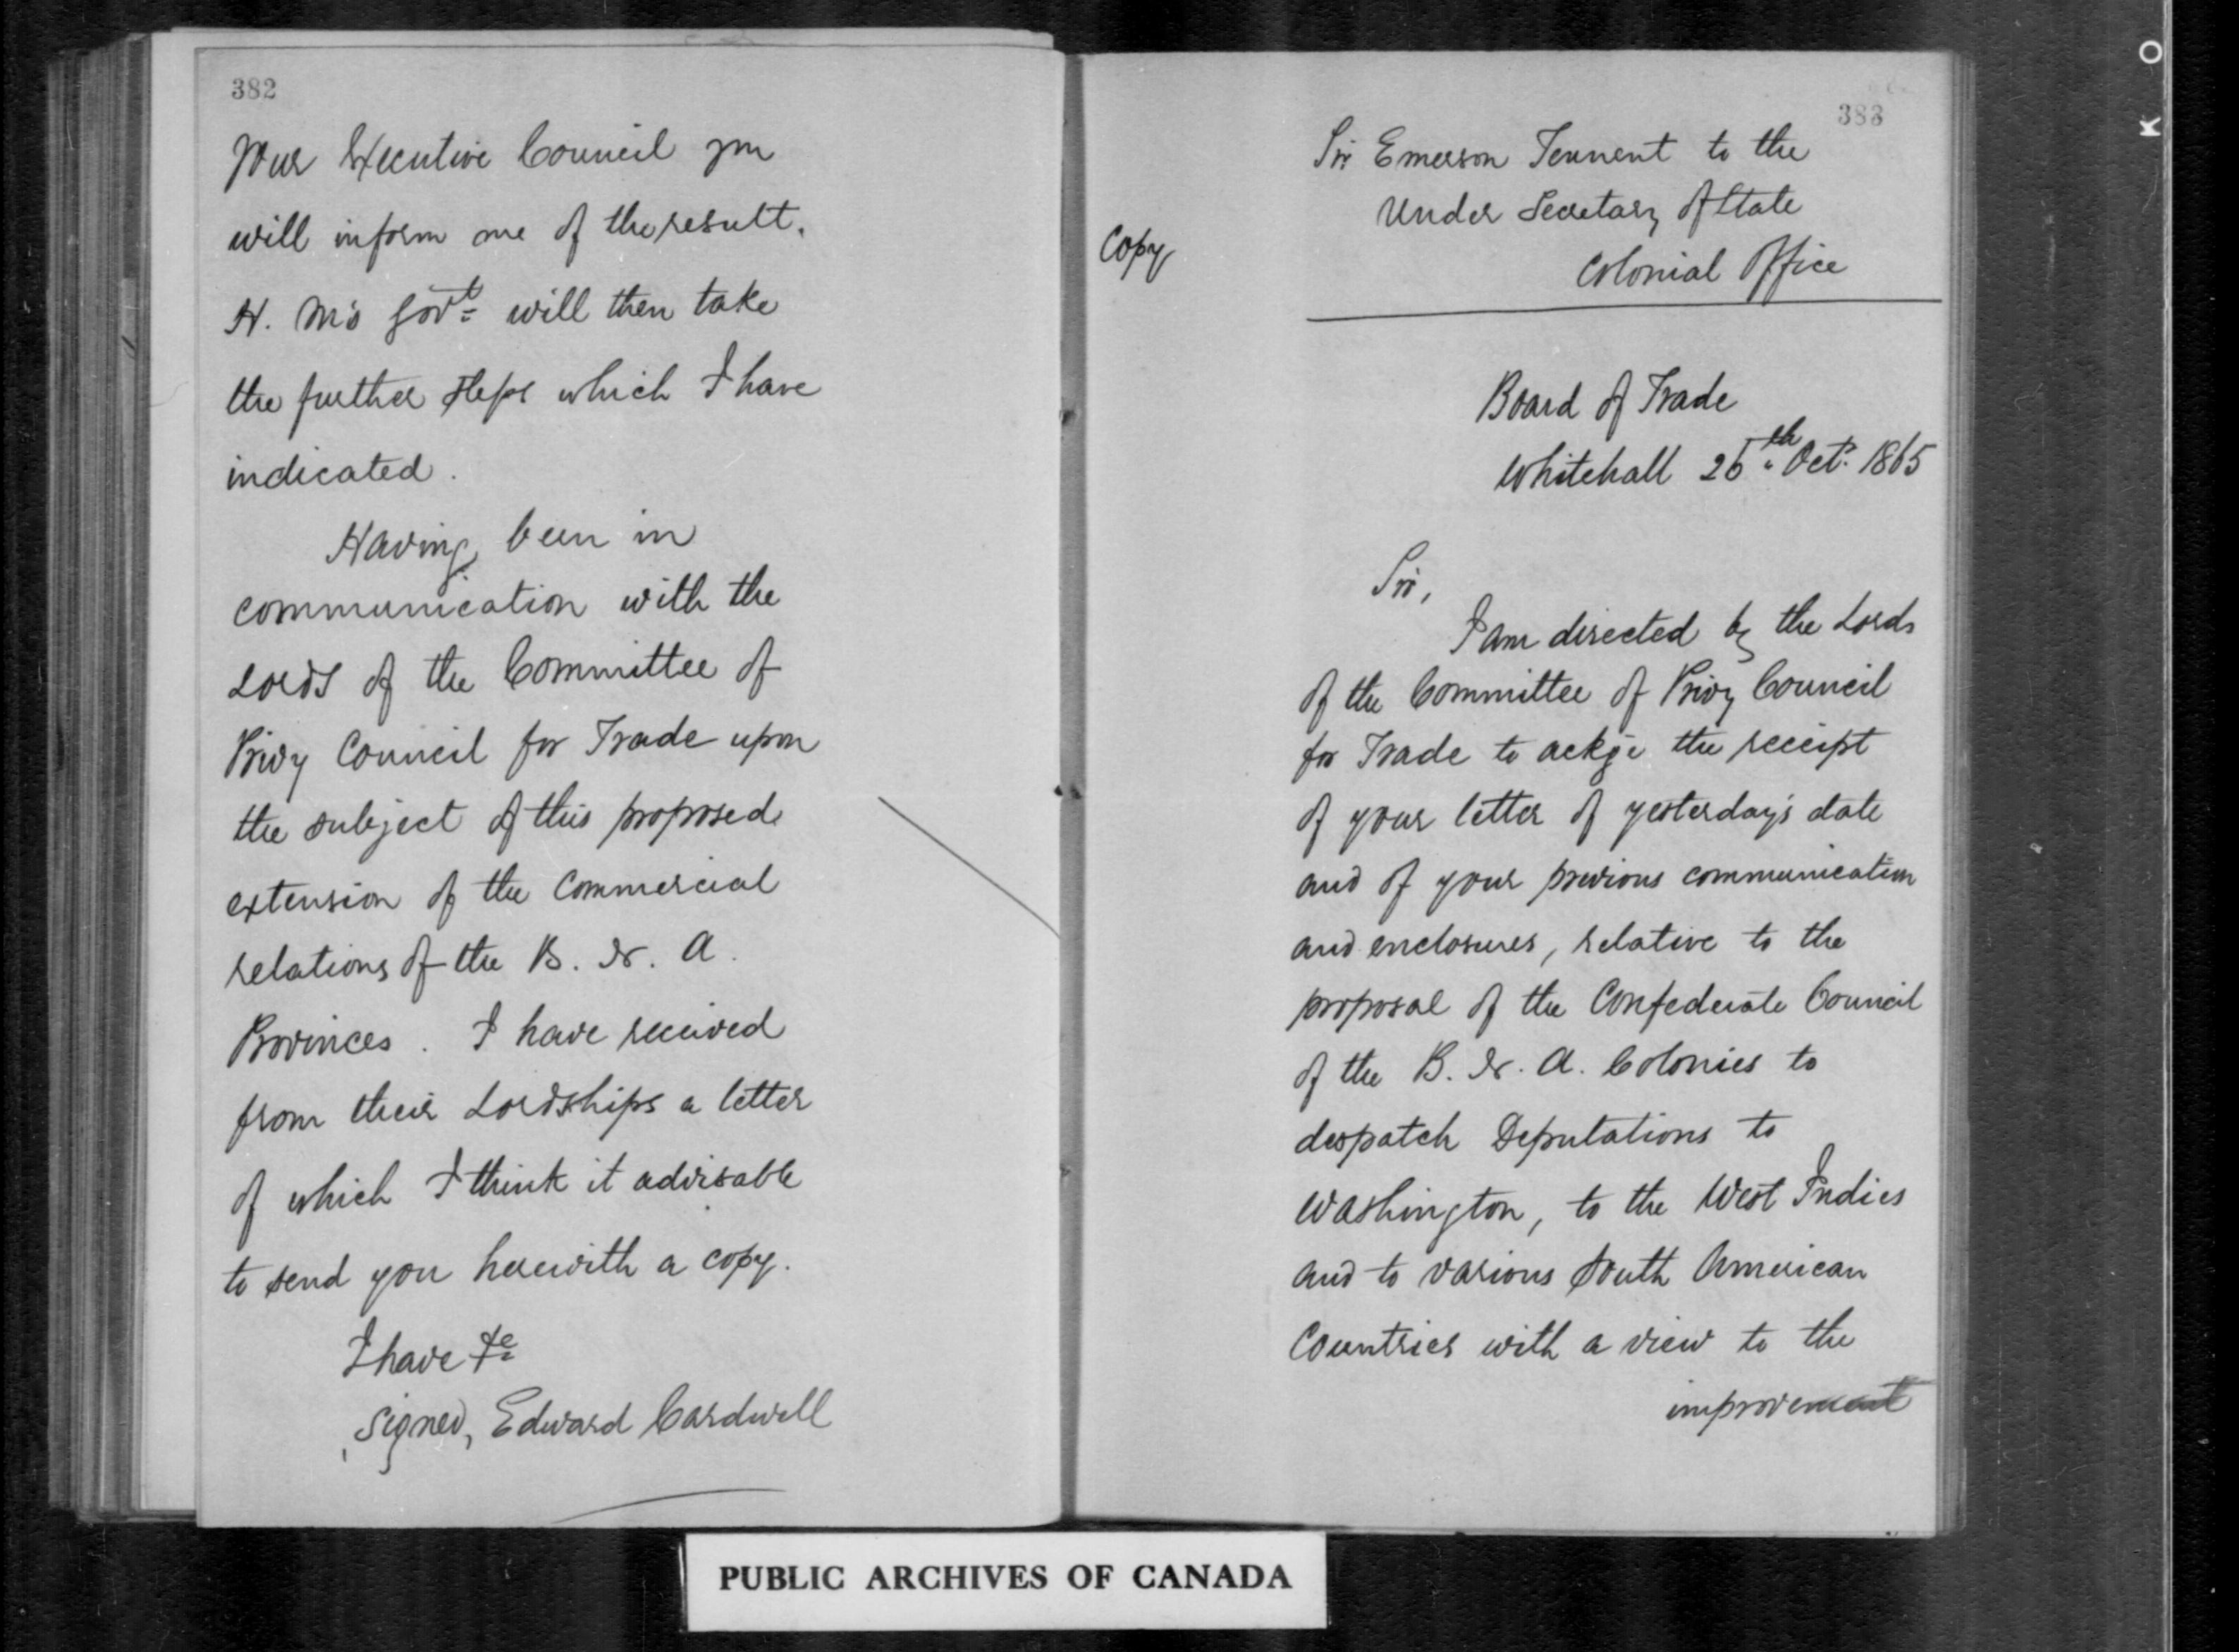 382
your Executive Council you
will inform me of the result.
H. M's Govt will then take
the further steps which I have
indicated.
Having been in
communication with the
Lords of the Committee of
Privy Council for Trade upon
the subject of this proposed
extension of the Commercial
relations of the B. N. A.
Provinces. I have received
from their Lordships a letter
of which I think it advisable
to send you herewith a copy.
I have &c
Signed, Edward Cardwell
383
Sir Emerson Tennent to the
Under Secretary of State
Colonial Office
Copy
Board of Trade
Whitehall 26th Oct. 1865
Sir,
I am directed by the Lords
of the Committee of Privy Council
for Trade to ackge the receipt
of your letter of yesterday's date
and of your previous communication
and enclosures, relative to the
proposal of the Confederate Council
of the B. N. A. Colonies to
despatch Deputations to
Washington, to the West Indies
and to various South American
Countries with a view to the
improvement
PUBLIC ARCHIVES OF CANADA
K O